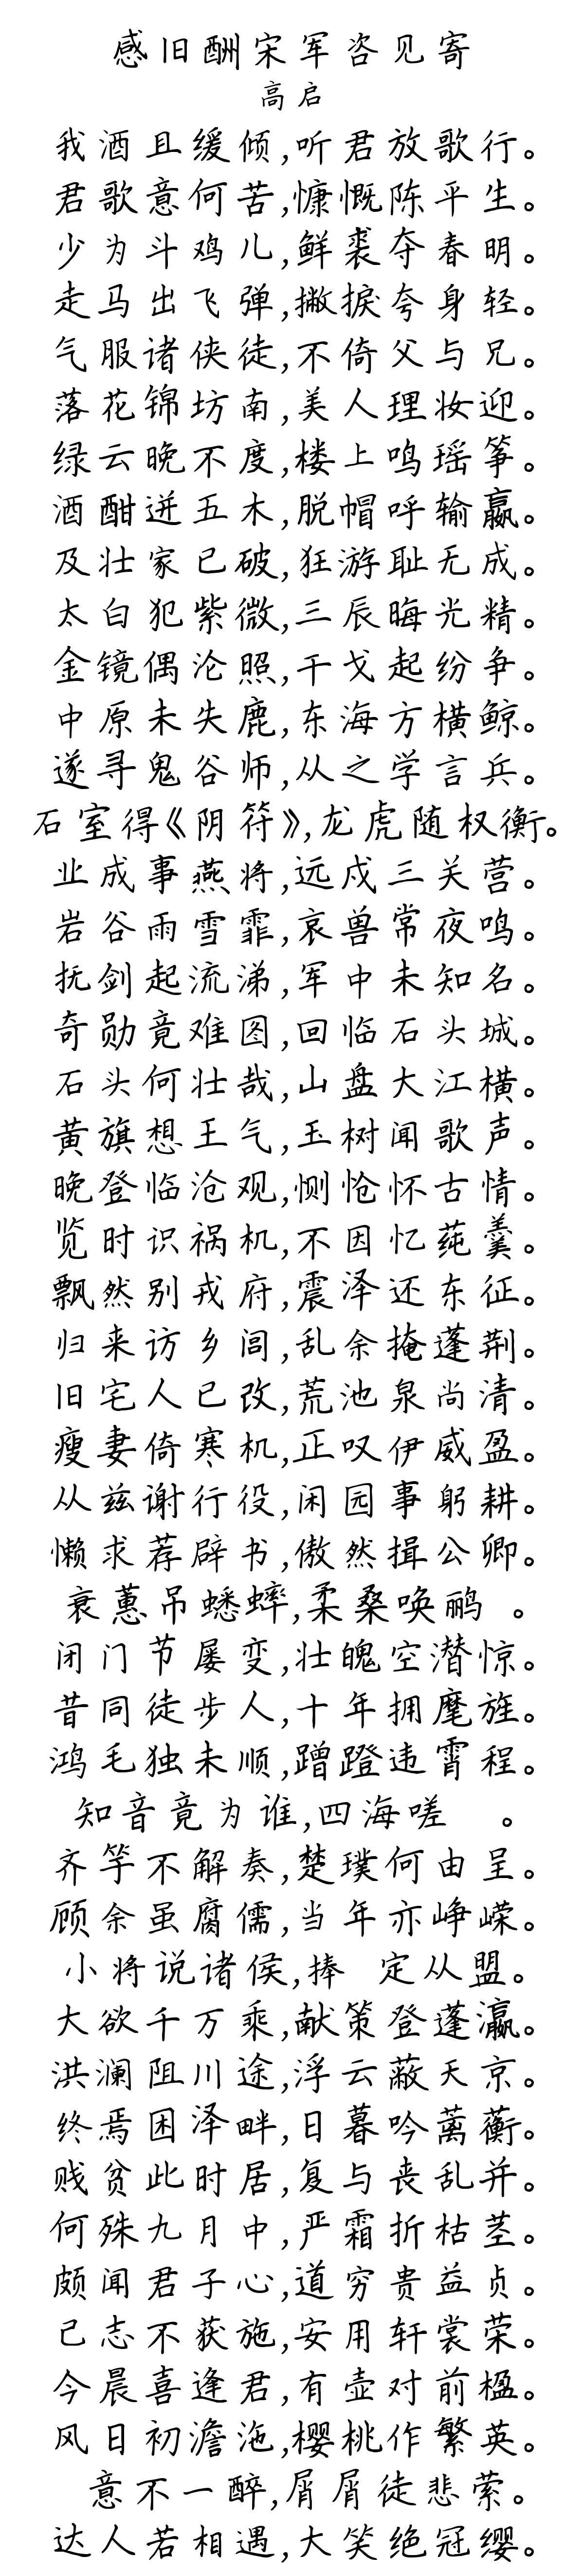 感旧酬宋军咨见寄
高启
我酒且缓倾,听君放歌行。
君歌意何苦,慷慨陈平生。
少为斗鸡儿,鲜裘夺春明。
走马出飞弹,撇捩夸身轻。
气服诸侠徒,不倚父与兄。
落花锦坊南,美人理妆迎。
绿云晚不度,楼上鸣瑶筝。
酒酣迸五木,脱帽呼输赢。
及壮家已破,狂游耻无成。
太白犯紫微,三辰晦光精。
金镜偶沦照,干戈起纷争。
中原未失鹿,东海方横鲸。
遂寻鬼谷师,从之学言兵。
石室得《阴符》,龙虎随权衡。
业成事燕将,远戍三关营。
岩谷雨雪霏,哀兽常夜鸣。
抚剑起流涕,军中未知名。
奇勋竟难图,回临石头城。
石头何壮哉,山盘大江横。
黄旗想王气,玉树闻歌声。
晚登临沧观,恻怆怀古情。
览时识祸机,不因忆莼羹。
飘然别戎府,震泽还东征。
归来访乡闾,乱余掩蓬荆。
旧宅人已改,荒池泉尚清。
瘦妻倚寒机,正叹伊威盈。
从兹谢行役,闲园事躬耕。
懒求荐辟书,傲然揖公卿。
衰蕙吊蟋蟀,柔桑唤鹂 。
闭门节屡变,壮魄空潜惊。
昔同徒步人,十年拥麾旌。
鸿毛独未顺,蹭蹬违霄程。
知音竟为谁,四海嗟 。
齐竽不解奏,楚璞何由呈。
顾余虽腐儒,当年亦峥嵘。
小将说诸侯,捧 定从盟。
大欲千万乘,献策登蓬瀛。
洪澜阻川途,浮云蔽天京。
终焉困泽畔,日暮吟蓠蘅。
贱贫此时居,复与丧乱并。
何殊九月中,严霜折枯茎。
颇闻君子心,道穷贵益贞。
己志不获施,安用轩裳荣。
今晨喜逢君,有壶对前楹。
风日初澹沲,樱桃作繁英。
意不一醉,屑屑徒悲萦。
达人若相遇,大笑绝冠缨。